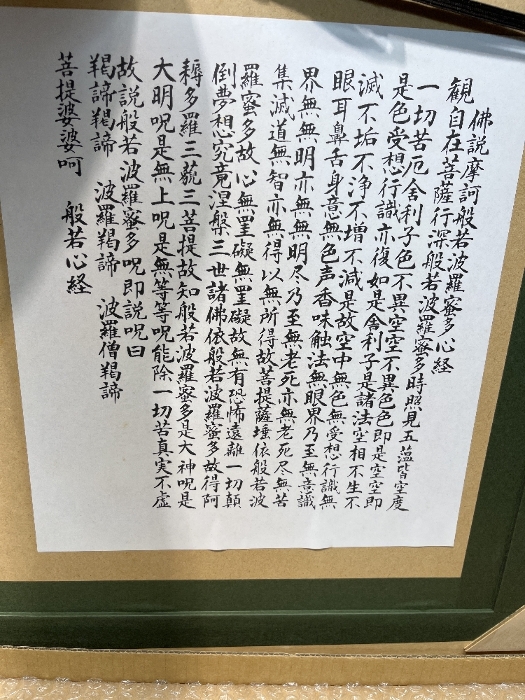 佛説摩訶般若波羅蜜多心経
観自在菩薩行深般若波羅蜜多時照見五蘊皆空度
一切苦厄舎利子色不異空空不異色色即是空空即
是色受想行識亦復如是舎利子是諸法空相不生不
滅不垢不浄不増不減是故空中無色無受想行識無
眼耳鼻舌身意無色声香味触法無眼界乃至無意識
界無無明亦無無明尽乃至無老死亦無老死尽無苦
集滅道無智亦無得以無所得故菩提薩埵依般若波
羅蜜多故心無罣礙無罣礙故無有恐怖遠離一切顛
倒夢想究竟涅槃三世諸佛依般若波羅蜜多故得阿
耨多羅三藐三菩提故知般若波羅蜜多是大神呪是
大明呪是無上呪是無等等呪能除一切苦真実不虚
故説般若波羅蜜多呪即説呪曰
羯諦羯諦 波羅羯諦 波羅僧羯諦
菩提婆婆呵 般若心経